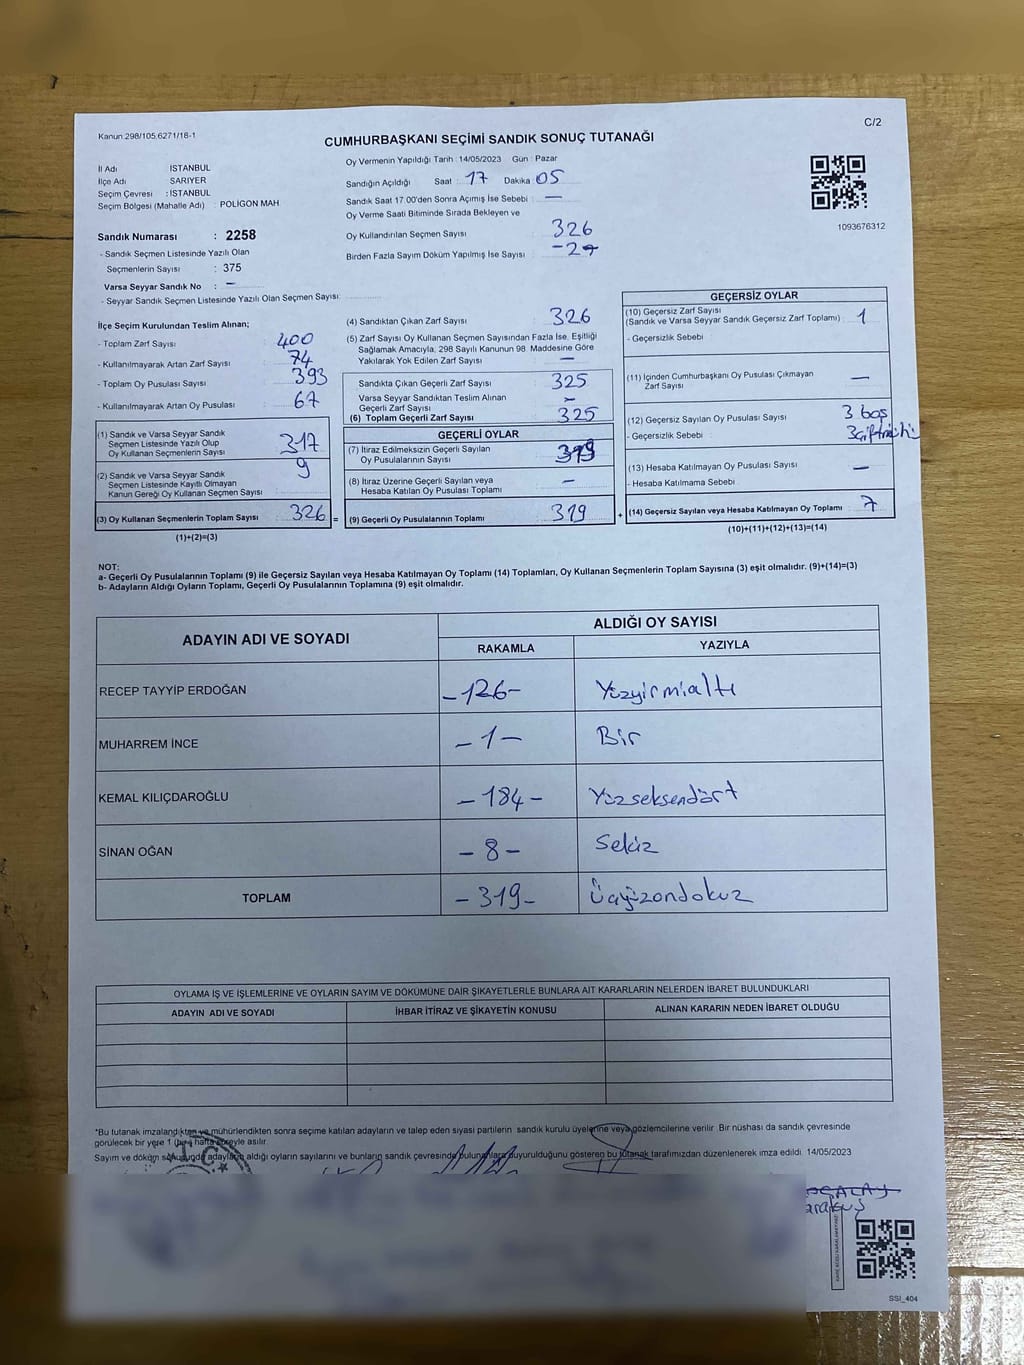 Kanun:298/105,6271/18-1
C/2
CUMHURBAŞKANI SEÇİMİ SANDIK SONUÇ TUTANAĞI
İl Adı İSTANBUL
İlçe Adı SARIYER
Seçim Çevresi : İSTANBUL
Seçim Bölgesi (Mahalle Adı) : POLİGON MAH
Sandık Numarası : 2258
- Sandık Seçmen Listesinde Yazılı Olan
Seçmenlerin Sayısı : 375
Varsa Seyyar Sandık No : -
- Seyyar Sandık Seçmen Listesinde Yazılı Olan Seçmen Sayısı:
Oy Vermenin Yapıldığı Tarih :14/05/2023 Gün : Pazar
Sandığın Açıldığı Saat : 17 Dakika : 05
Sandık Saat 17.00'den Sonra Açımış İse Sebebi : -
Oy Verme Saati Bitiminde Sırada Bekleyen ve
Oy Kullandırılan Seçmen Sayısı 326
Birden Fazla Sayım Döküm Yapılmış İse Sayısı :
1093676312
İlçe Seçim Kurulundan Teslim Alınan;
- Toplam Zarf Sayısı : 400
- Kullanılmayarak Artan Zarf Sayısı : 74
- Toplam Oy Pusulası Sayısı : 393
- Kullanılmayarak Artan Oy Pusulası : 67
(1) Sandık ve Varsa Seyyar Sandık
Seçmen Listesinde Yazılı Olup
Oy Kullanan Seçmenlerin Sayısı : 317
(2) Sandık ve Varsa Seyyar Sandık
Seçmen Listesinde Kayıtlı Olmayan
Kanun Gereği Oy Kullanan Seçmen Sayısı : 9
(3) Oy Kullanan Seçmenlerin Toplam Sayısı : 326 =
(1)+(2)=(3)
(4) Sandıktan Çıkan Zarf Sayısı : 326
(5) Zarf Sayısı Oy Kullanan Seçmen Sayısından Fazla İse, Eşitliği
Sağlamak Amacıyla, 298 Sayılı Kanunun 98. Maddesine Göre
Yakılarak Yok Edilen Zarf Sayısı : -
Sandıkta Çıkan Geçerli Zarf Sayısı : 325
Varsa Seyyar Sandıktan Teslim Alınan
Geçerli Zarf Sayısı : -
(6) Toplam Geçerli Zarf Sayısı : 325
GEÇERLİ OYLAR
(7) İtiraz Edilmeksizin Geçerli Sayılan
Oy Pusulalarının Sayısı : 319
(8) İtiraz Üzerine Geçerli Sayılan veya
Hesaba Katılan Oy Pusulası Toplamı : -
(9) Geçerli Oy Pusulalarının Toplamı : 319 +
GEÇERSİZ OYLAR
(10) Geçersiz Zarf Sayısı
(Sandık ve Varsa Seyyar Sandık Geçersiz Zarf Toplamı) : 1
- Geçersizlik Sebebi
(11) İçinden Cumhurbaşkanı Oy Pusulası Çıkmayan
Zarf Sayısı : -
(12) Geçersiz Sayılan Oy Pusulası Sayısı : 3 boş
- Geçersizlik Sebebi :
(13) Hesaba Katılmayan Oy Pusulası Sayısı : -
- Hesaba Katılmama Sebebi :
(14) Geçersiz Sayılan veya Hesaba Katılmayan Oy Toplamı : 7
(10)+(11)+(12)+(13)=(14)
NOT:
a- Geçerli Oy Pusulalarının Toplamı (9) ile Geçersiz Sayılan veya Hesaba Katılmayan Oy Toplamı (14) Toplamları, Oy Kullanan Seçmenlerin Toplam Sayısına (3) eşit olmalıdır. (9)+(14)=(3)
b- Adayların Aldığı Oyların Toplamı, Geçerli Oy Pusulalarının Toplamına (9) eşit olmalıdır.
ADAYIN ADI VE SOYADI ALDIĞI OY SAYISI
RAKAMLA YAZIYLA
RECEP TAYYİP ERDOĞAN -126- Yüzyirmialtı
MUHARREM İNCE -1- Bir
KEMAL KILIÇDAROĞLU -184- Yüzseksendört
SİNAN OĞAN -8- Sekiz
TOPLAM -319- Üçyüzondokuz
OYLAMA İŞ VE İŞLEMLERİNE VE OYLARIN SAYIM VE DÖKÜMÜNE DAİR ŞİKAYETLERLE BUNLARA AİT KARARLARIN NELERDEN İBARET BULUNDUKLARI
ADAYIN ADI VE SOYADI İHBAR İTİRAZ VE ŞİKAYETİN KONUSU ALINAN KARARIN NEDEN İBARET OLDUĞU
*Bu tutanak imzalandıktan ve mühürlendikten sonra seçime katılan adayların ve talep eden siyasi partilerin sandık kurulu üyelerine veya gözlemcilerine verilir. Bir nüshası da sandık çevresinde
görülecek bir yere 1 (bir) hafta süreyle asılır.
Sayım ve döküm sonucunda adayların aldığı oyların sayılarını ve bunların sandık çevresinde bulunanlara duyurulduğunu gösteren bu tutanak tarafımızdan düzenlenerek imza edildi. 14/05/2023
SSİ_404